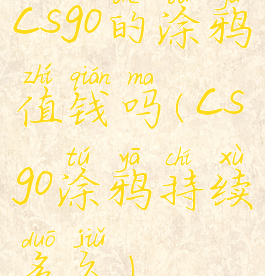 CSgo的涂鸦
zhí qián ma
值钱吗(CS
tú yā chí xù
go涂鸦持续
duō jiǔ
多久)